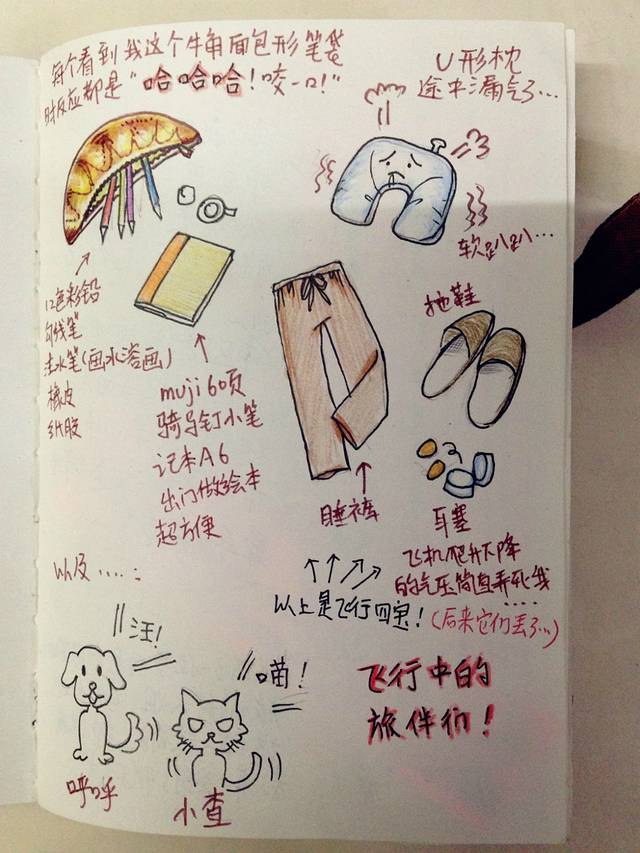 每个看到我这个牛角面包形笔袋
时反应都是“哈哈哈！咬一口！”
U形枕
途中漏气了…
软趴趴…
12色彩铅
勾线笔
注水笔(画水溶画)
橡皮
纸胶
muji60页
骑马钉小笔
记本A6
出门做绘本
超方便
拖鞋
睡裤
耳塞
飞机爬升下降
的气压简直弄死我
(后来它们丢了…)
以上是飞行四宝！
以及……：
汪！
呼呼
喵！
小查
飞行中的
旅伴们！